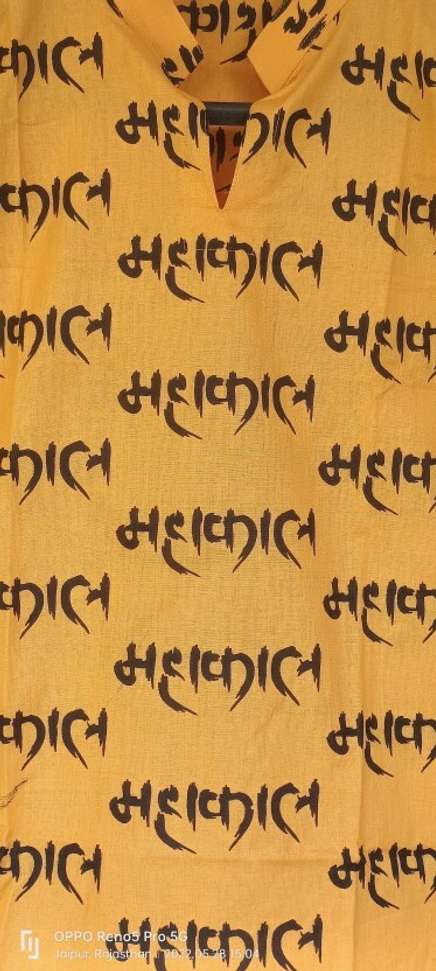 काल महाक
महाकाल
काल महाक
महाकाल
काल महाक
महाकाल
काल महाक
महाकाल
काल महाक
महाकाल
काल महाक
महाकाल
काल महाक
महाकाल
OPPO Reno5 Pro 5G
Jaipur, Rajasthan 2022.05.28 15:04